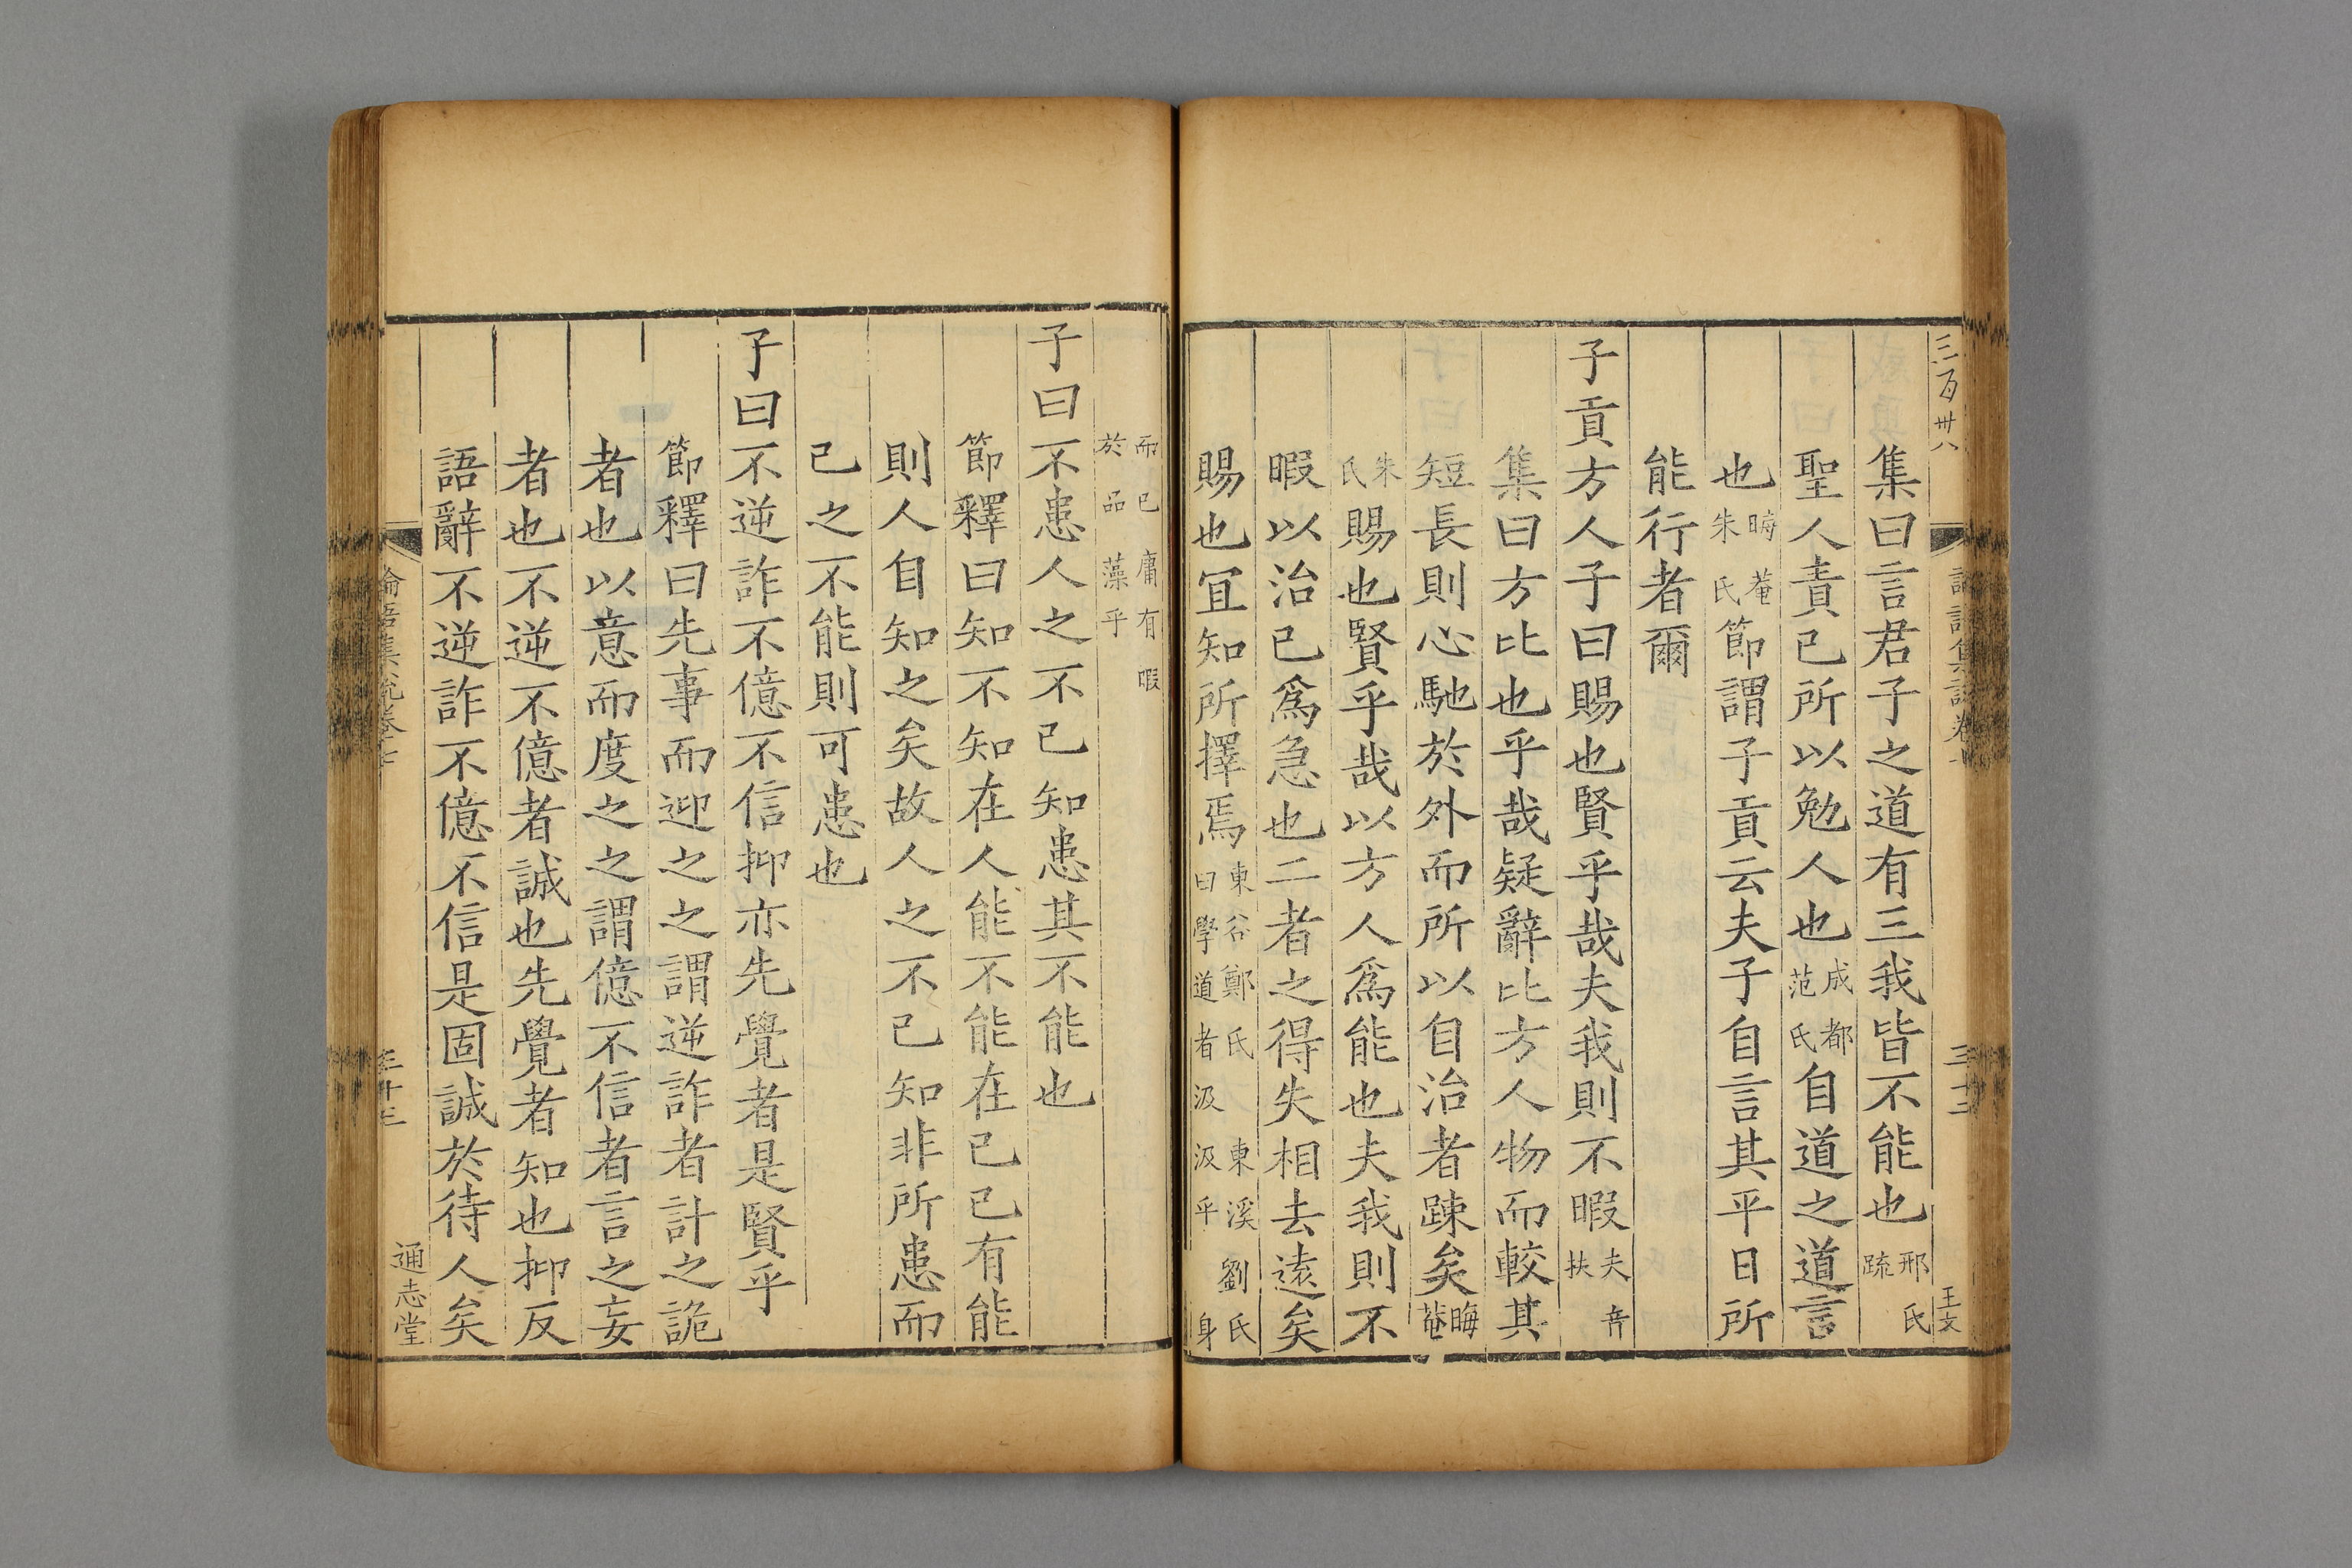 三百卅八
三十二
王文
集曰言君子之道有三我皆不能也邢氏疏
聖人責已所以勉人也成都范氏自道之道言
也晦菴朱氏節謂子貢云夫子自言其平日所
能行者爾
子貢方人子曰賜也賢乎哉夫我則不暇夫音扶
集曰方比也乎哉疑辭比方人物而較其
短長則心馳於外而所以自治者踈矣晦菴
朱氏賜也賢乎哉以方人爲能也夫我則不
暇以治已爲急也二者之得失相去遠矣
賜也宜知所擇焉東谷鄭氏東溪劉氏曰學道者汲汲乎身
而已庸有暇於品藻乎
子曰不患人之不已知患其不能也
節釋曰知不知在人能不能在已已有能
則人自知之矣故人之不已知非所患而
已之不能則可患也
子曰不逆詐不億不信抑亦先覺者是賢乎
節釋曰先事而迎之之謂逆詐者計之詭
者也以意而度之之謂億不信者言之妄
者也不逆不億者誠也先覺者知也抑反
語辭不逆詐不億不信是固誠於待人矣
論語集說卷七
三十三
通志堂